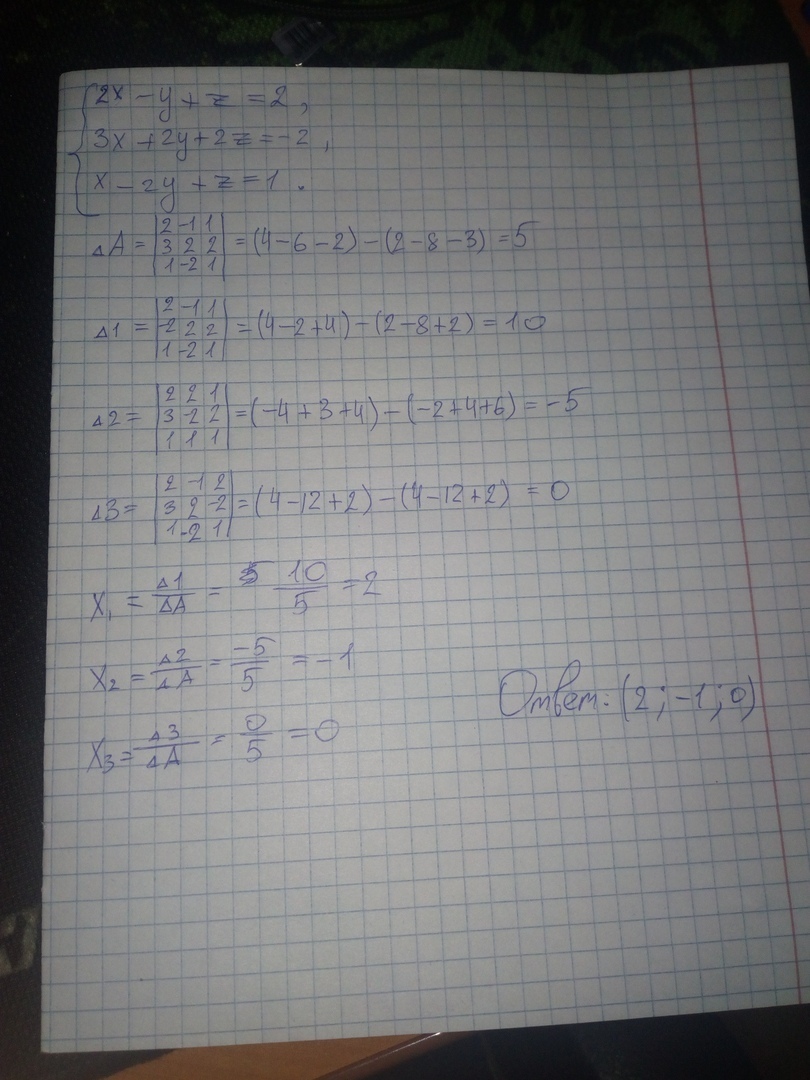 2x - y + z = 2,
3x + 2y + 2z = -2,
x - 2y + z = 1.
ΔA = |2 -1 1; 3 2 2; 1 -2 1| = (4 - 6 - 2) - (2 - 8 - 3) = 5
Δ1 = |2 -1 1; -2 2 2; 1 -2 1| = (4 - 2 + 4) - (2 - 8 + 2) = 10
Δ2 = |2 2 1; 3 -2 2; 1 1 1| = (-4 + 3 + 4) - (-2 + 4 + 6) = -5
Δ3 = |2 -1 2; 3 2 -2; 1 -2 1| = (4 - 12 + 2) - (4 - 12 + 2) = 0
X₁ = Δ1/ΔA = 10/5 = 2
X₂ = Δ2/ΔA = -5/5 = -1
Ответ: (2; -1; 0)
X₃ = Δ3/ΔA = 0/5 = 0